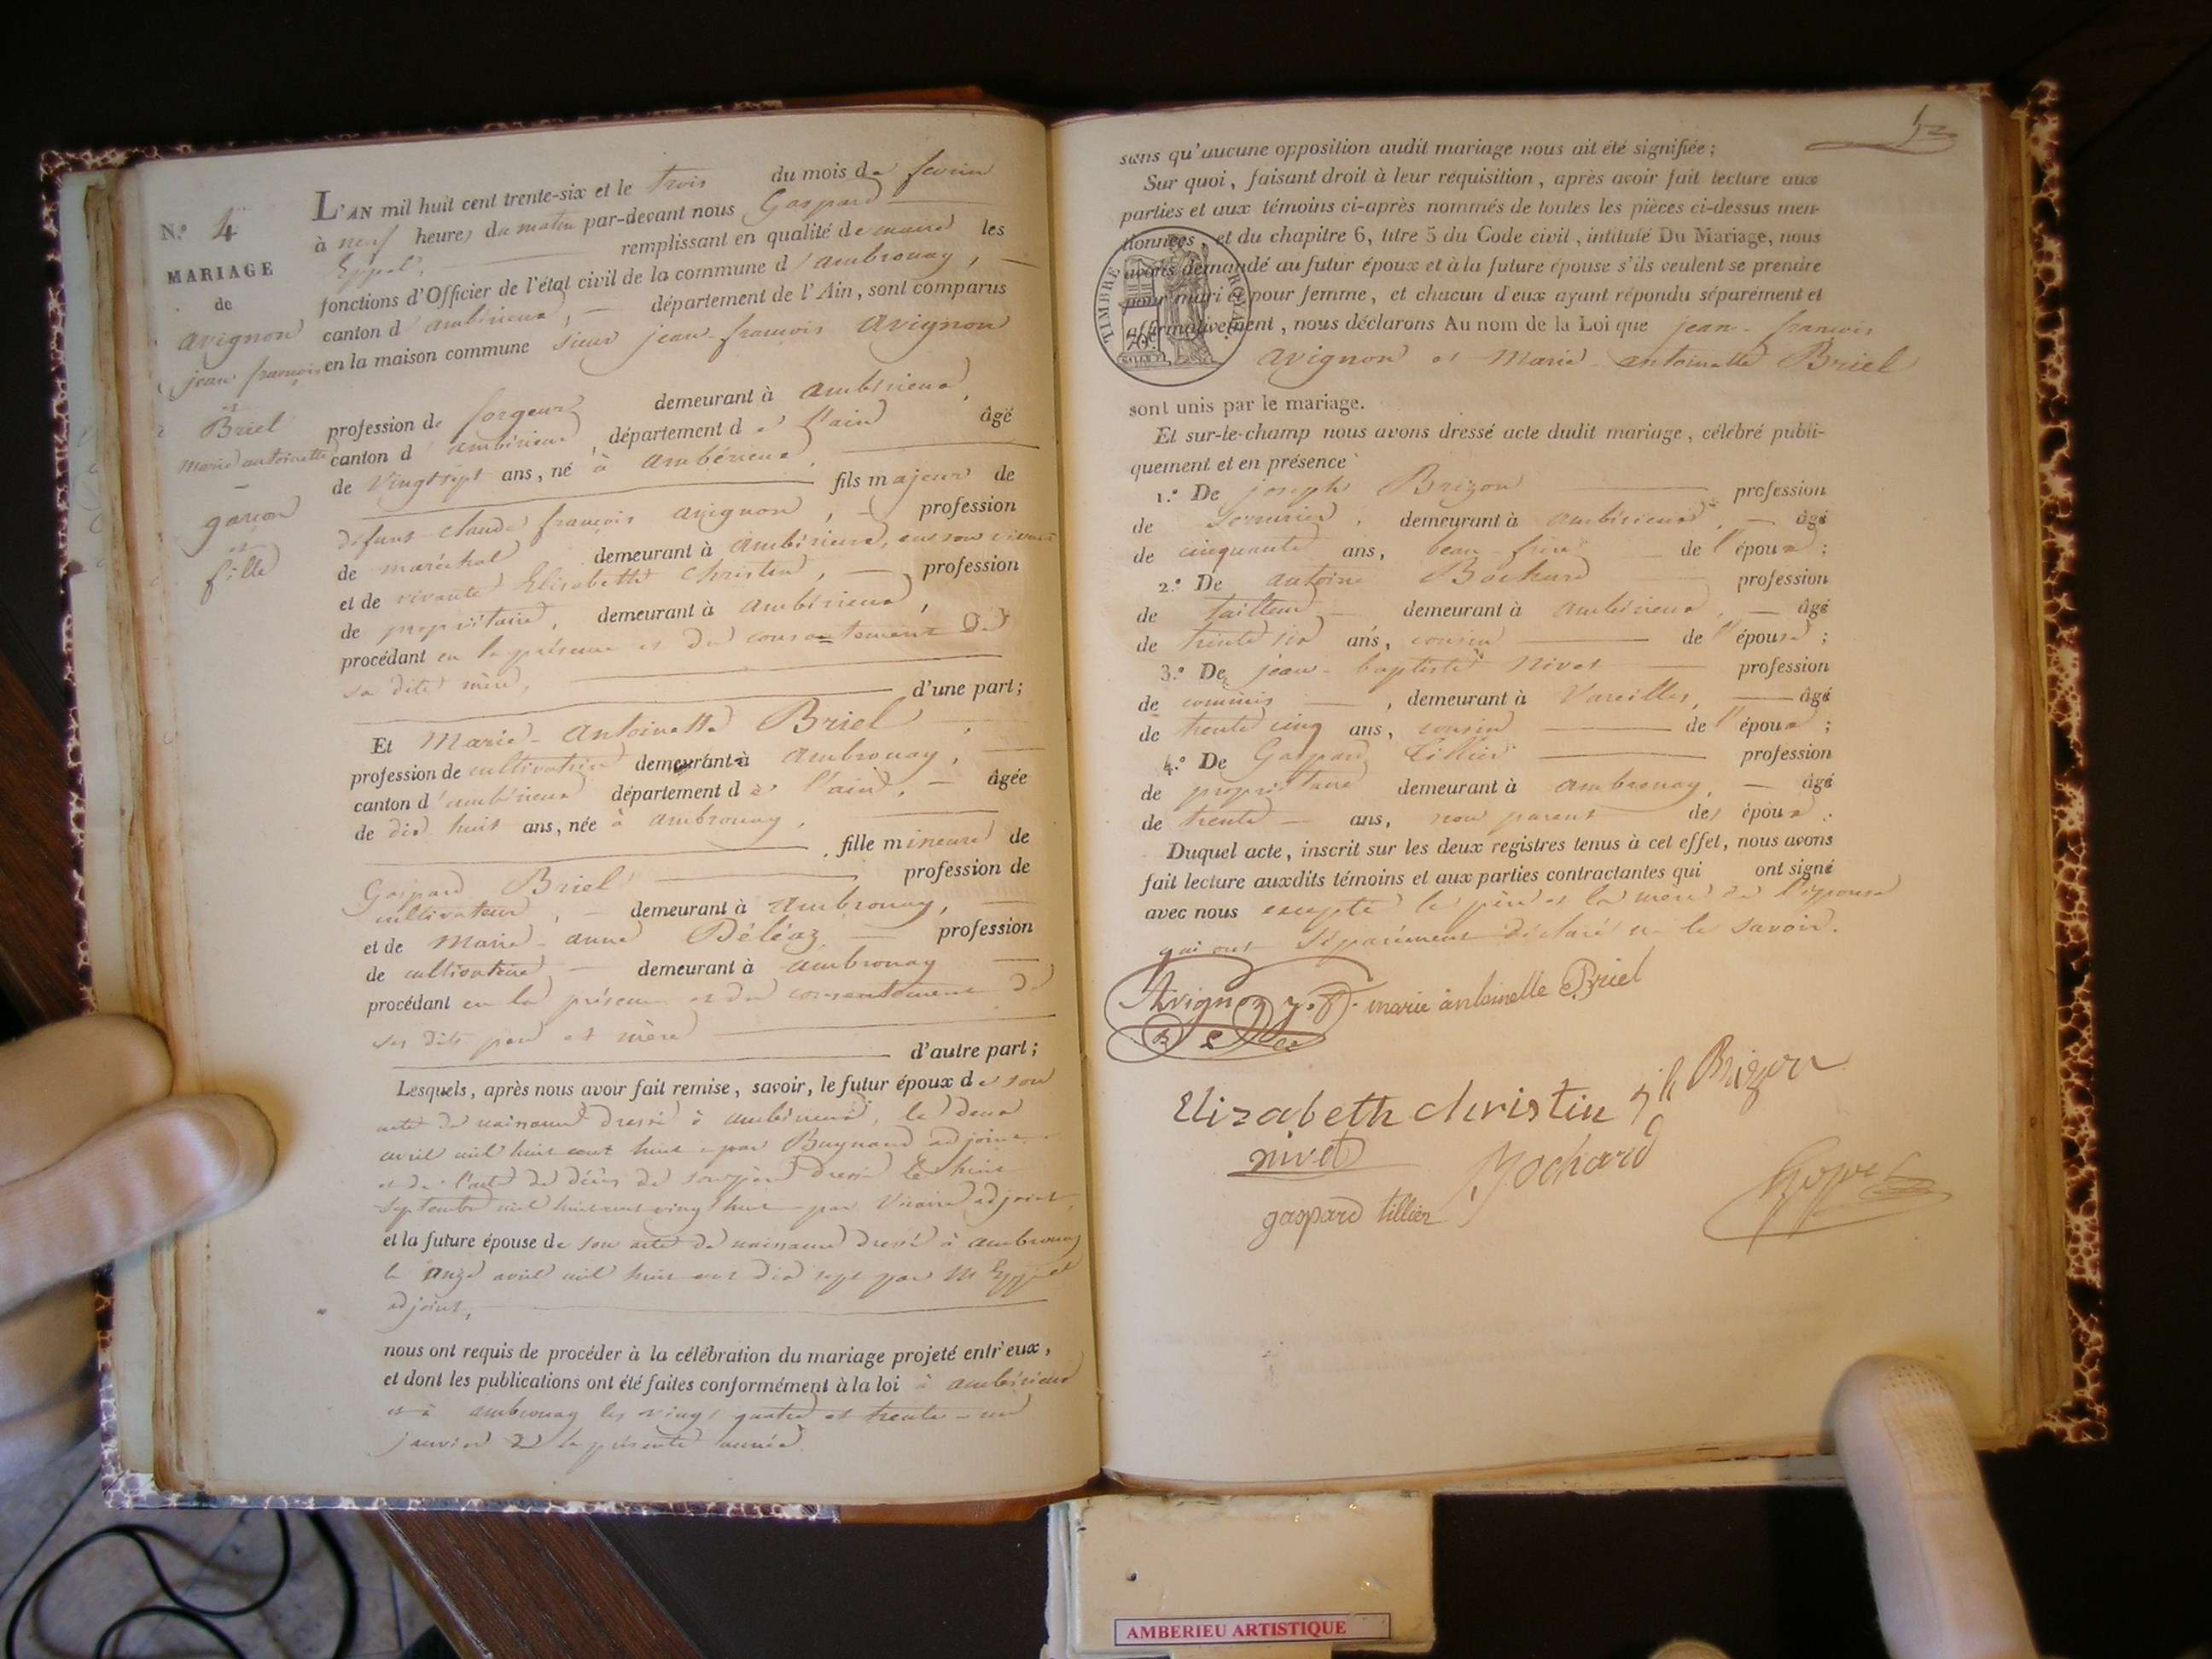 N.º 4
MARIAGE
de
avignon
jean françois
et
Briel
marie antoinette
garçon
et
fille
L'AN mil huit cent trente-six et le trois du mois de fevrier
à neuf heures du matin par-devant nous Gaspard
Eyppel, remplissant en qualité de maire les
fonctions d'Officier de l'état civil de la commune d'ambronay,
canton d'ambérieux, département de l'Ain, sont comparus
en la maison commune sieur jean-françois avignon
profession de forgeur demeurant à ambérieux,
canton d'ambérieux, département de l'ain âgé
de vingt sept ans, né à ambérieux,
fils majeur de
defunt claude françois avignon, profession
de maréchal demeurant à ambérieux, en son vivant
et de vivante Elisabette christin, profession
de propriétaire, demeurant à ambérieux,
procédant en la présence et du consentement de
sa dite mère,
d'une part;
Et Marie-Antoinette Briel,
profession de cultivatrice demeurant à ambronay,
canton d'ambérieux département de l'ain, âgée
de dix huit ans, née à ambronay,
fille mineure de
Gaspard Briel profession de
cultivateur, demeurant à ambronay,
et de Marie-anne Béléaz profession
de cultivatrice, demeurant à ambronay
procédant en la présence et du consentement de
ses dits père et mère
d'autre part;
Lesquels, après nous avoir fait remise, savoir, le futur époux de son
acte de naissance dressé à ambérieux, le deux
avril mil huit cent huit par Buynand adjoint
et de l'acte de décès de son père dressé le huit
septembre mil huit cent vingt huit par adjoint,
et la future épouse de son acte de naissance dressé à ambronay
le onze avril mil huit cent dix sept par M Eyppel
adjoint,
nous ont requis de procéder à la célébration du mariage projeté entr'eux,
et dont les publications ont été faites conformément à la loi à ambérieux
et à ambronay les vingt quatre et trente-un
janvier de la présente année.
sans qu'aucune opposition audit mariage nous ait été signifiée;
Sur quoi, faisant droit à leur réquisition, après avoir fait lecture aux
parties et aux témoins ci-après nommés de toutes les pièces ci-dessus men-
tionnées, et du chapitre 6, titre 5 du Code civil, intitulé Du Mariage, nous
avons demandé au futur époux et à la future épouse s'ils veulent se prendre
pour mari et pour femme, et chacun d'eux ayant répondu séparément et
affirmativement, nous déclarons Au nom de la Loi que jean-françois
avignon et Marie-antoinette Briel
TIMBRE ROYAL
sont unis par le mariage.
Et sur-le-champ nous avons dressé acte dudit mariage, célébré publi-
quement et en présence
1.º De joseph Brizon profession
de serrurier, demeurant à ambérieux, âgé
de cinquante ans, beau-frère de l'époux;
2.º De antoine Bochard profession
de tailleur demeurant à ambérieux, âgé
de trente six ans, cousin de l'époux;
3.º De jean-baptiste Nivet profession
de commis, demeurant à Vareilles, âgé
de trente cinq ans, cousin de l'époux;
4.º De Gaspard Tillier profession
de propriétaire demeurant à ambronay, âgé
de trente ans, non parent des époux.
Duquel acte, inscrit sur les deux registres tenus à cet effet, nous avons
fait lecture auxdits témoins et aux parties contractantes qui ont signé
avec nous excepté le père et la mère de l'épouse
qui ont séparément déclaré ne le savoir.
Avignon j. f. marie antoinette Briel
Elizabeth christin jh Brizon
nivet Bochard
gaspard tillier Eyppel
AMBERIEU ARTISTIQUE